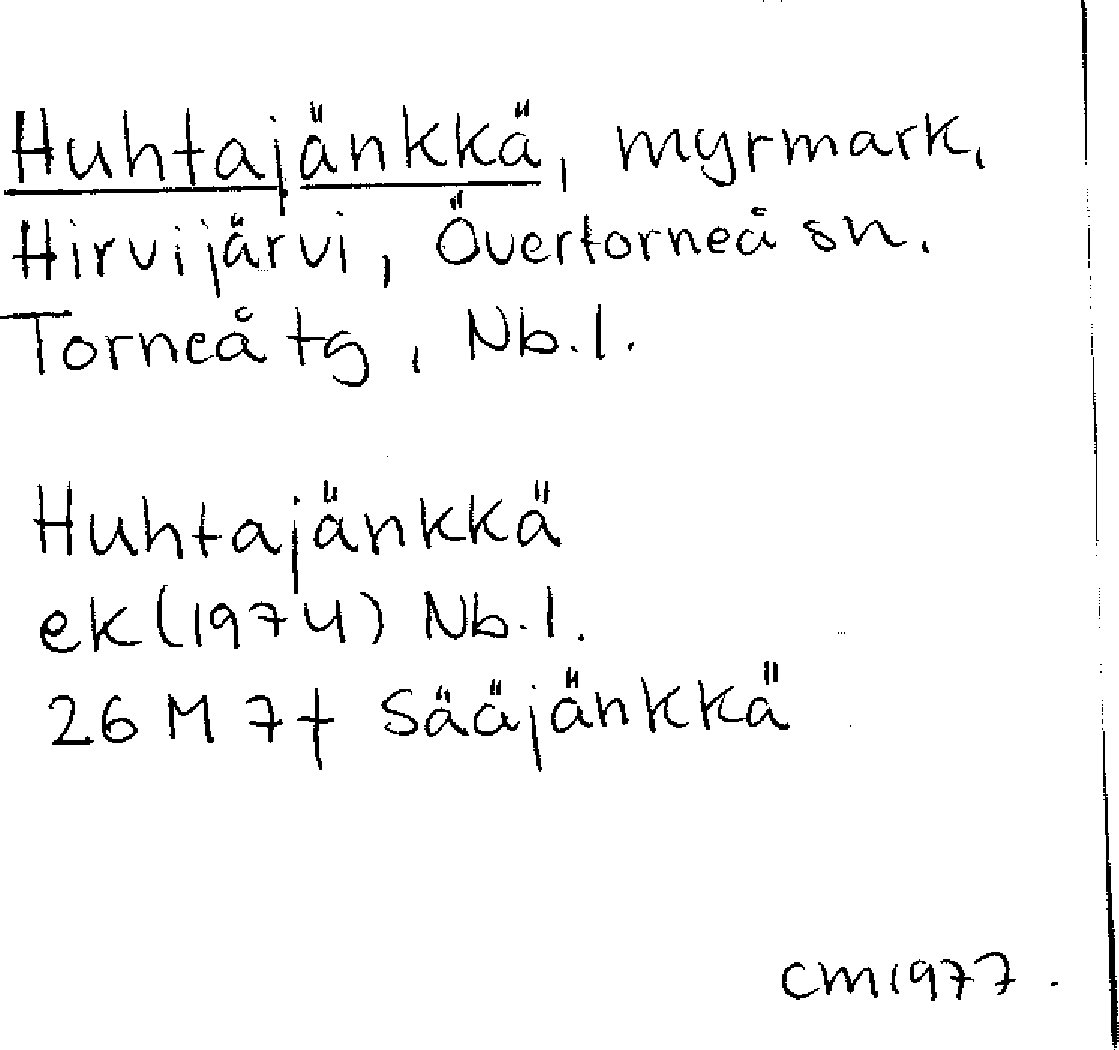 Huhtajänkkä, myrmark,
Hirvijärvi, Övertorneå sn.
Torneå tg, Nb. l.
Huhtajänkkä
ek (1974) Nb. l.
26 M 7f Sääjänkkä
CM 1977.